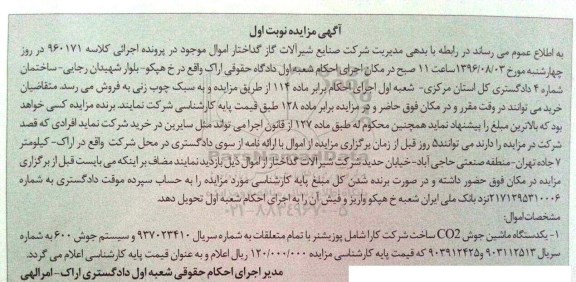 آگهی مزایده نوبت اول
به اطلاع عموم می رساند در رابطه با بدهی مدیریت شرکت صنایع شیرآلات گاز گداختار اموال موجود در پرونده اجرائی کلاسه ۹۶۰۱۷۱ در روز
چهارشنبه مورخ ۱۳۹۶/۰۸/۰۳ ساعت ۱۱ صبح در مکان اجرای احکام شعبه اول دادگاه حقوقی اراک واقع در خ هپکو- بلوار شهیدان رجایی- ساختمان
شماره ۴ دادگستری کل استان مرکزی- شعبه اول اجرای احکام برابر ماده ۱۱۴ از طریق مزایده و به سبک چوب زنی به فروش می رسد. متقاضیان
خرید می توانند در وقت مقرر و در مکان فوق حاضر و در مزایده برابر ماده ۱۲۸ طبق قیمت پایه کارشناسی شرکت نمایند. برنده مزایده کسی خواهد
بود که بالاترین مبلغ را پیشنهاد نماید همچنین محکوم له طبق ماده ۱۲۷ از قانون اجرا می تواند مثل سایرین در خرید شرکت نماید افرادی که قصد
شرکت در مزایده را دارند می توانند ۵ روز قبل از زمان برگزاری مزایده از اموال با ارائه نامه از سوی دادگستری در محل شرکت واقع در اراک- کیلومتر
۷ جاده تهران- منطقه صنعتی حاجی آباد- خیابان حدید- شرکت شیرآلات گداختار از اموال ذیل بازدید نمایند مضاف بر اینکه می بایست قبل از برگزاری
مزایده در مکان فوق حضور داشته و در صورت برنده شدن کل مبلغ پایه کارشناسی مورد مزایده را به حساب سپرده موقت دادگستری به شماره
۲۱۷۱۲۹۵۳۱۰۰۰۶ نزد بانک ملی ایران شعبه خ هپکو واریز و فیش آن را به اجرای احکام شعبه اول تحویل دهد.
مشخصات اموال:
۱- یکدستگاه ماشین جوش CO2 ساخت شرکت کارا شامل پوزیشنر با تمام متعلقات به شماره سریال ۹۳۷۰۲۳۴۱۰ و سیستم جوش ۶۰۰ به شماره
سریال ۹۰۳۱۱۲۵۱۳ و ۹۰۳۹۱۲۴۲۵ که قیمت پایه کارشناسی مزایده ۱۲۰/۰۰۰/۰۰۰ ریال اعلام و به عنوان قیمت پایه کارشناسی اعلام می گردد.
مدیر اجرای احکام حقوقی شعبه اول دادگستری اراک- امرالهی